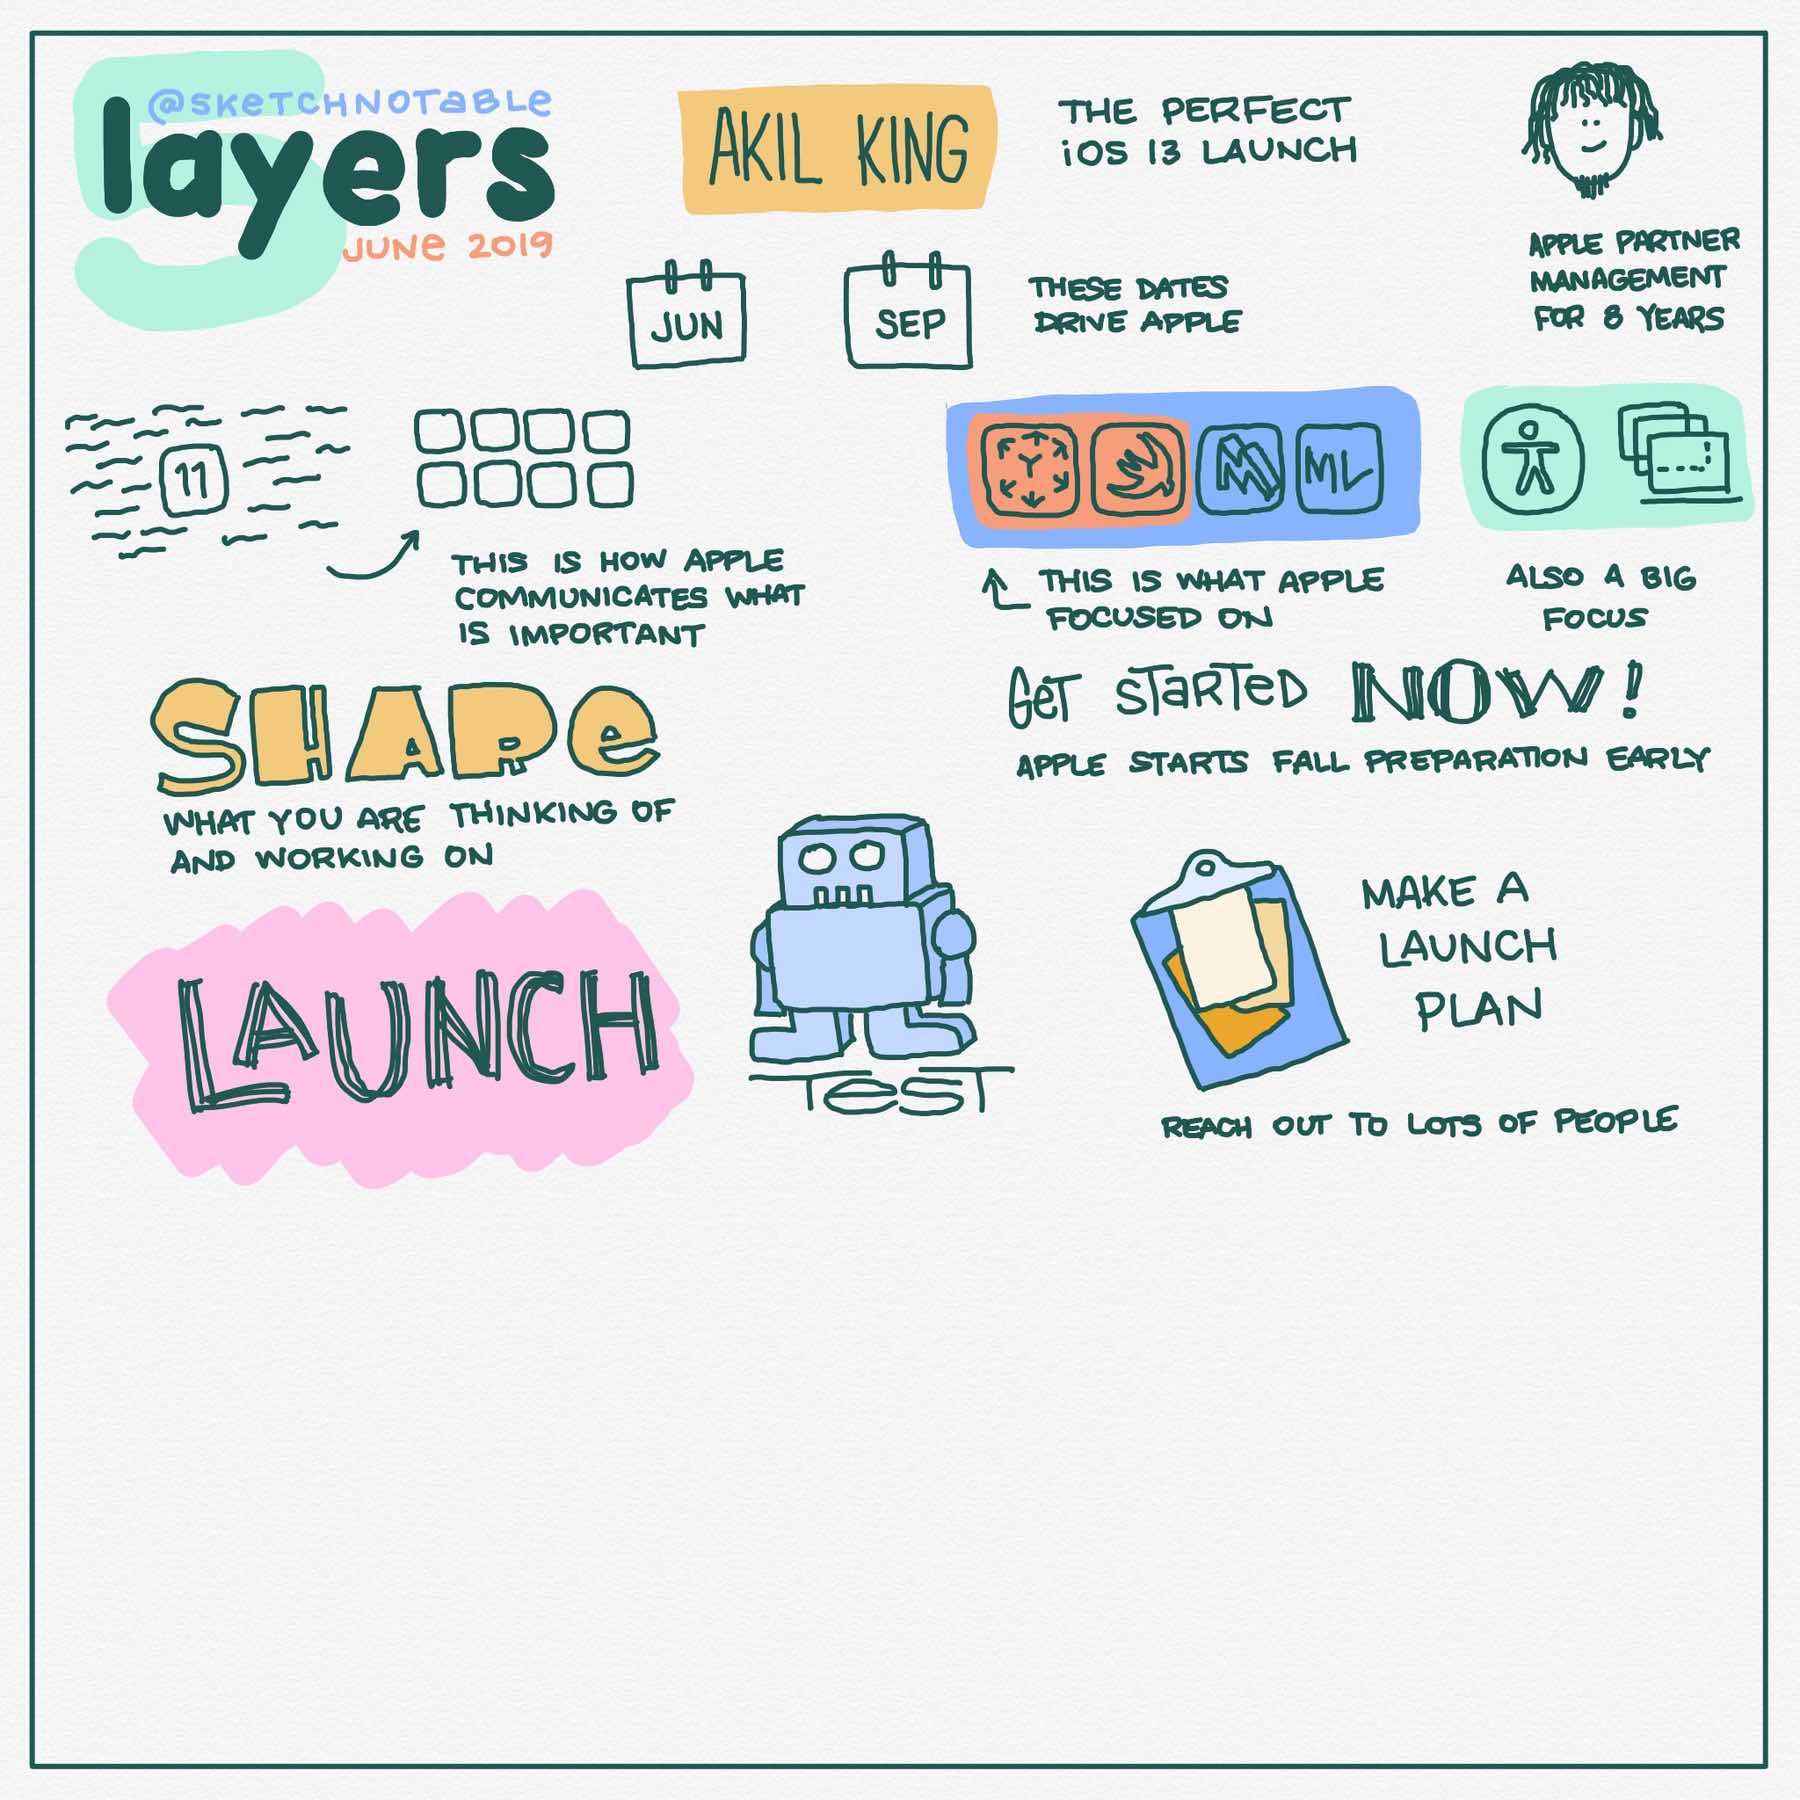 @SKETCHNOTABLE
layers
JUNE 2019
AKIL KING
THE PERFECT
iOS 13 LAUNCH
APPLE PARTNER
MANAGEMENT
FOR 8 YEARS
JUN
SEP
THESE DATES
DRIVE APPLE
11
THIS IS HOW APPLE
COMMUNICATES WHAT
IS IMPORTANT
ML
THIS IS WHAT APPLE
FOCUSED ON
ALSO A BIG
FOCUS
SHARE
WHAT YOU ARE THINKING OF
AND WORKING ON
GET STARTED NOW!
APPLE STARTS FALL PREPARATION EARLY
LAUNCH
MAKE A
LAUNCH
PLAN
REACH OUT TO LOTS OF PEOPLE